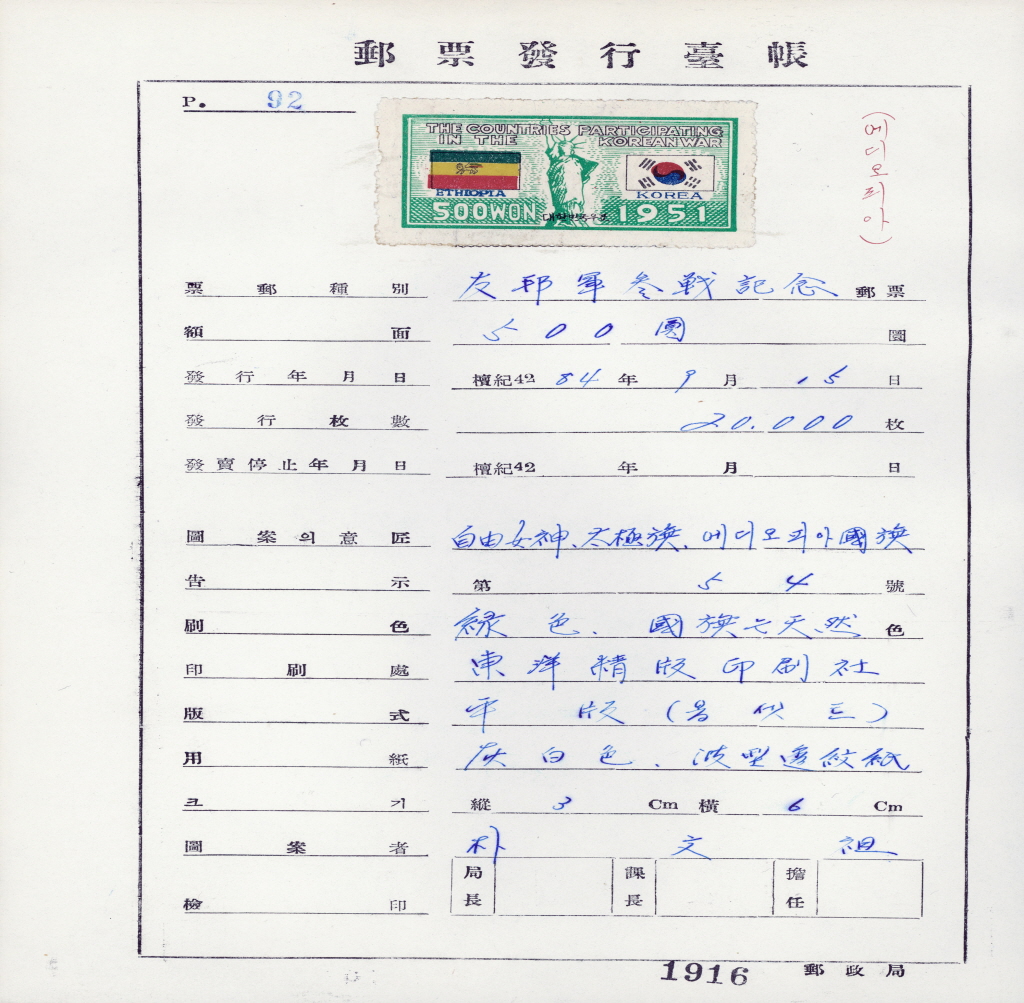 郵票發行臺帳
P. 92
THE COUNTRIES PARTICIPATING
IN THE KOREAN WAR
ETHIOPIA KOREA
500WON 대한민국우표 1951
(에디오피아)
票郵種別 友邦軍參戰記念 郵票
額面 500圓 圜
發行年月日 檀紀42 84年 9月 15日
發行枚數 20.000 枚
發賣停止年月日 檀紀42 年 月 日
圖案의意匠 自由女神、太極旗、에디오피아國旗
告示 第 54 號
刷色 緑色、國旗는天然 色
印刷處 東洋精版印刷社
版式 平版(옵셋트)
用紙 灰白色、波型透紋紙
크기 縱 3 Cm 橫 6 Cm
圖案者 朴文祖
檢印 局長 課長 擔任
1916 郵政局